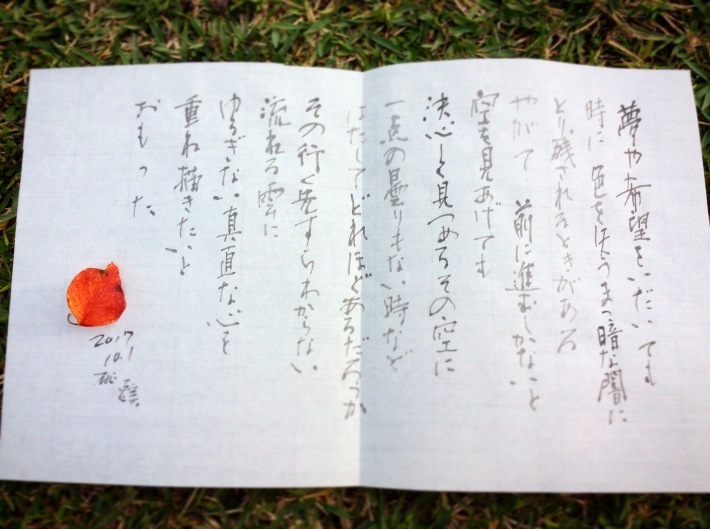 夢や希望をいだいても
時に 色をほうまつ暗な闇に
とり残されるときがある
やがて 前に進むしかないと
空を見あげても
決心し見つめるその空に
一点の曇りもない時など
はたして どれほどあるだろうか
その行く先すらわからない
流れる雲に
ゆるぎない 真直な心を
重ね描きたいと
おもった
2017
10.1